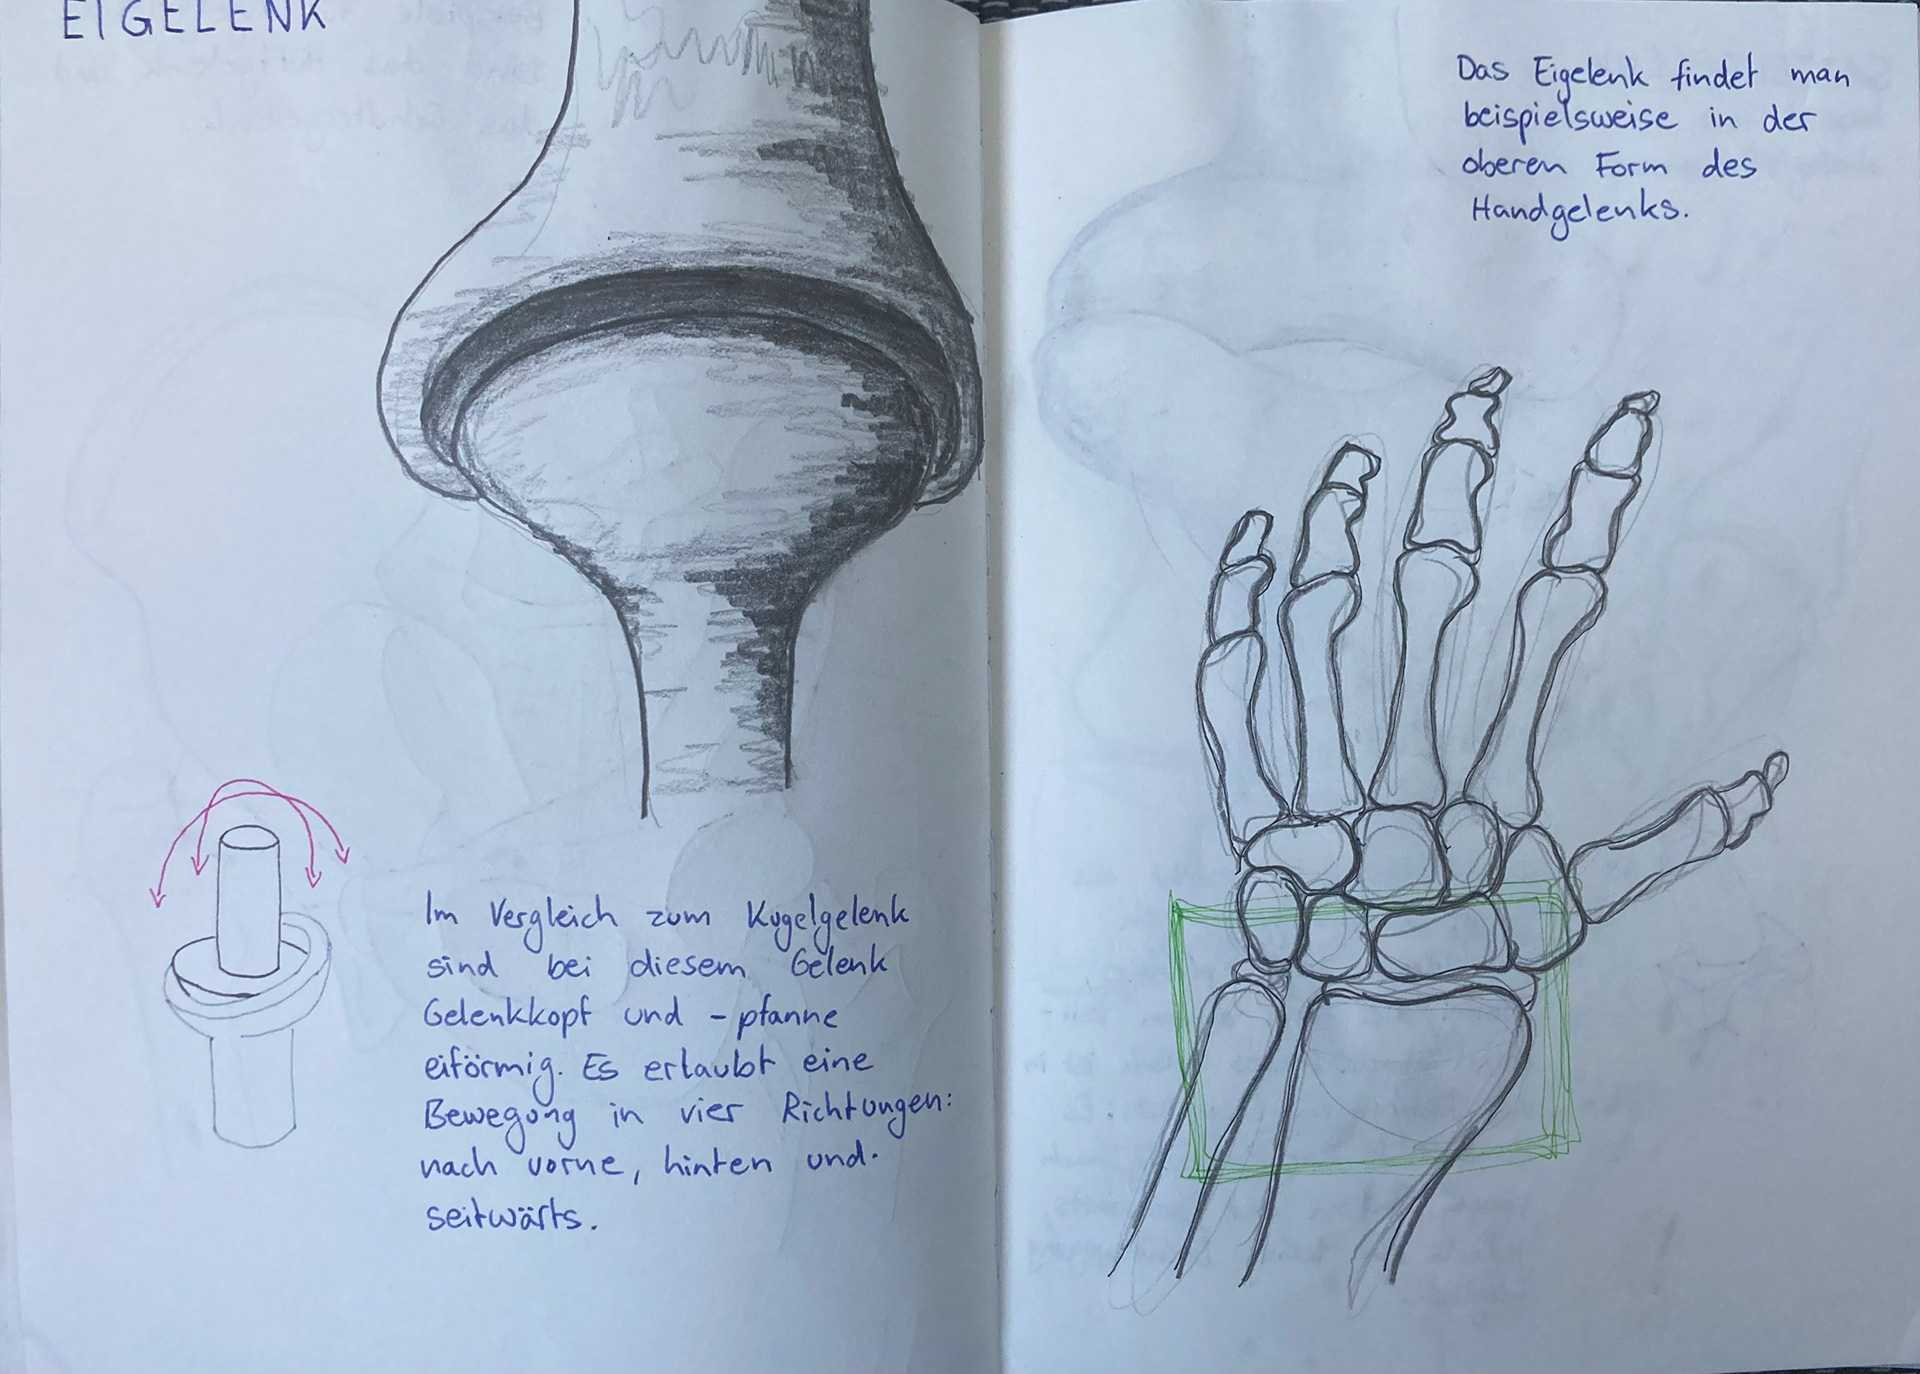 EIGELENK
Im Vergleich zum Kugelgelenk
sind bei diesem Gelenk
Gelenkkopf und -pfanne
eiförmig. Es erlaubt eine
Bewegung in vier Richtungen:
nach vorne, hinten und
seitwärts.
Das Eigelenk findet man
beispielsweise in der
oberen Form des
Handgelenks.